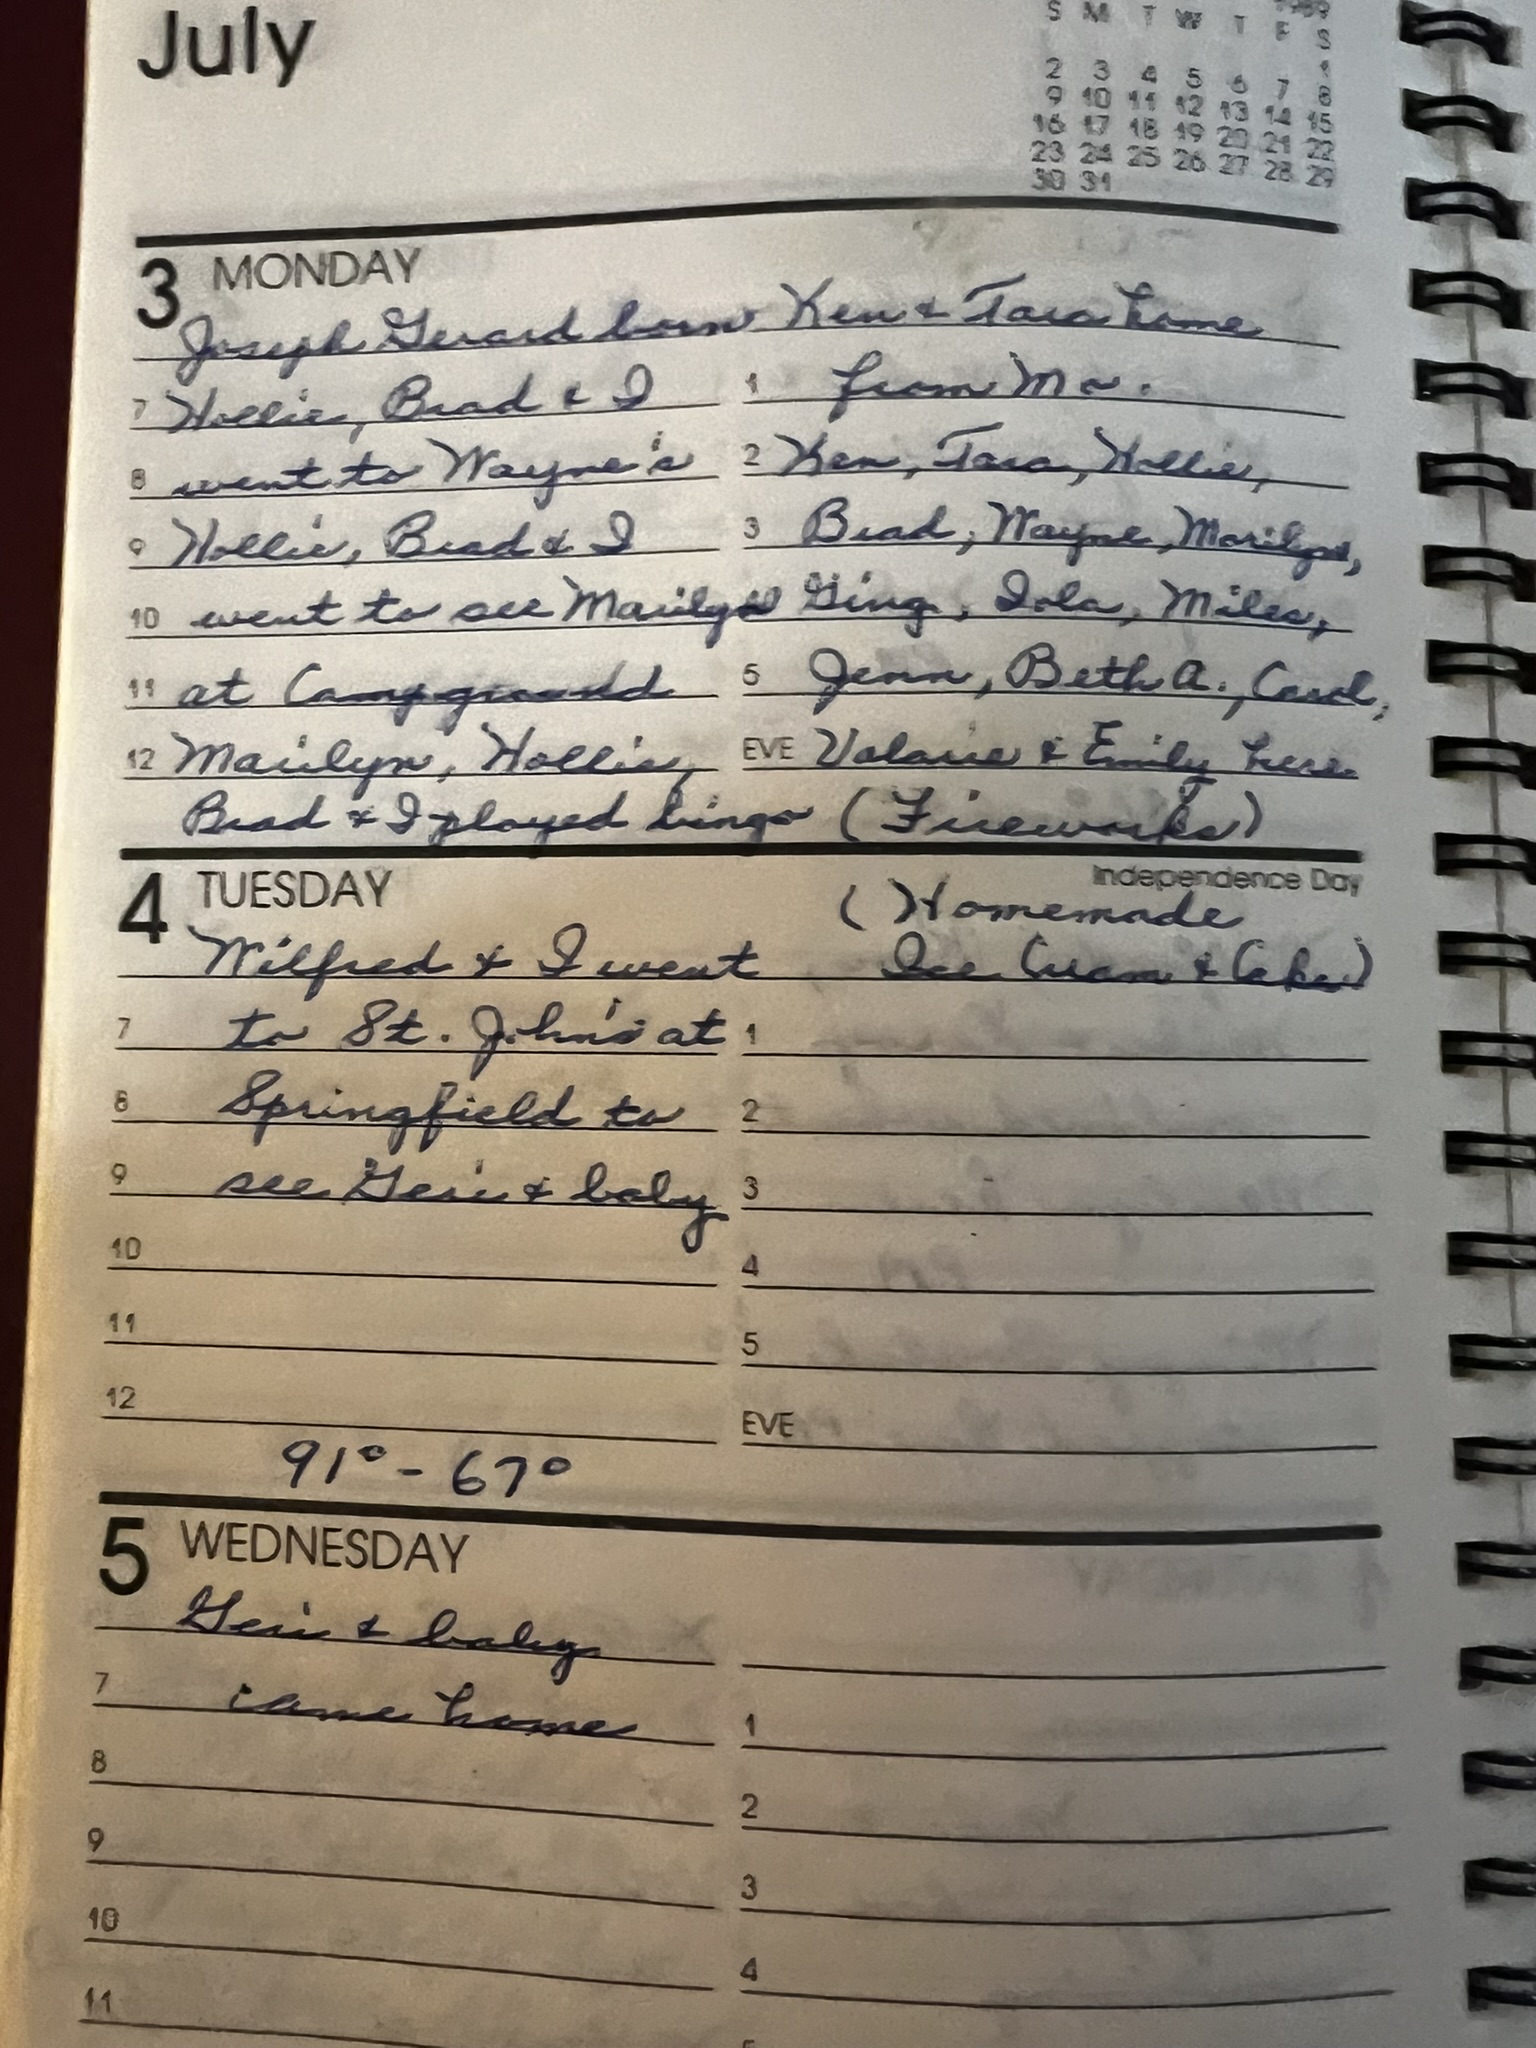 July
1989
S M T W T F S
1
2 3 4 5 6 7 8
9 10 11 12 13 14 15
16 17 18 19 20 21 22
23 24 25 26 27 28 29
30 31
3 MONDAY
Joseph Gerard born Ken & Tara home
7 Hollie, Brad & I
8 went to Wayne's
9 Hollie, Brad & I
10 went to see Marilyn
11 at Campground
12 Marilyn, Hollie,
Brad & I played bingo
1 from Mo.
2 Ken, Tara, Hollie,
3 Brad, Wayne, Marilyn,
Ging, Iola, Miles,
5 Jenn, Beth A., Carol,
EVE Valarie & Emily here.
(Fireworks)
4 TUESDAY
Independence Day
(Homemade
Ice Cream & Cake)
Wilfred & I went
7 to St. John's at
8 Springfield to
9 see Geri & baby
10
11
12
91° - 67°
1
2
3
4
5
EVE
5 WEDNESDAY
Geri & baby
7 came home
8
9
10
11
1
2
3
4